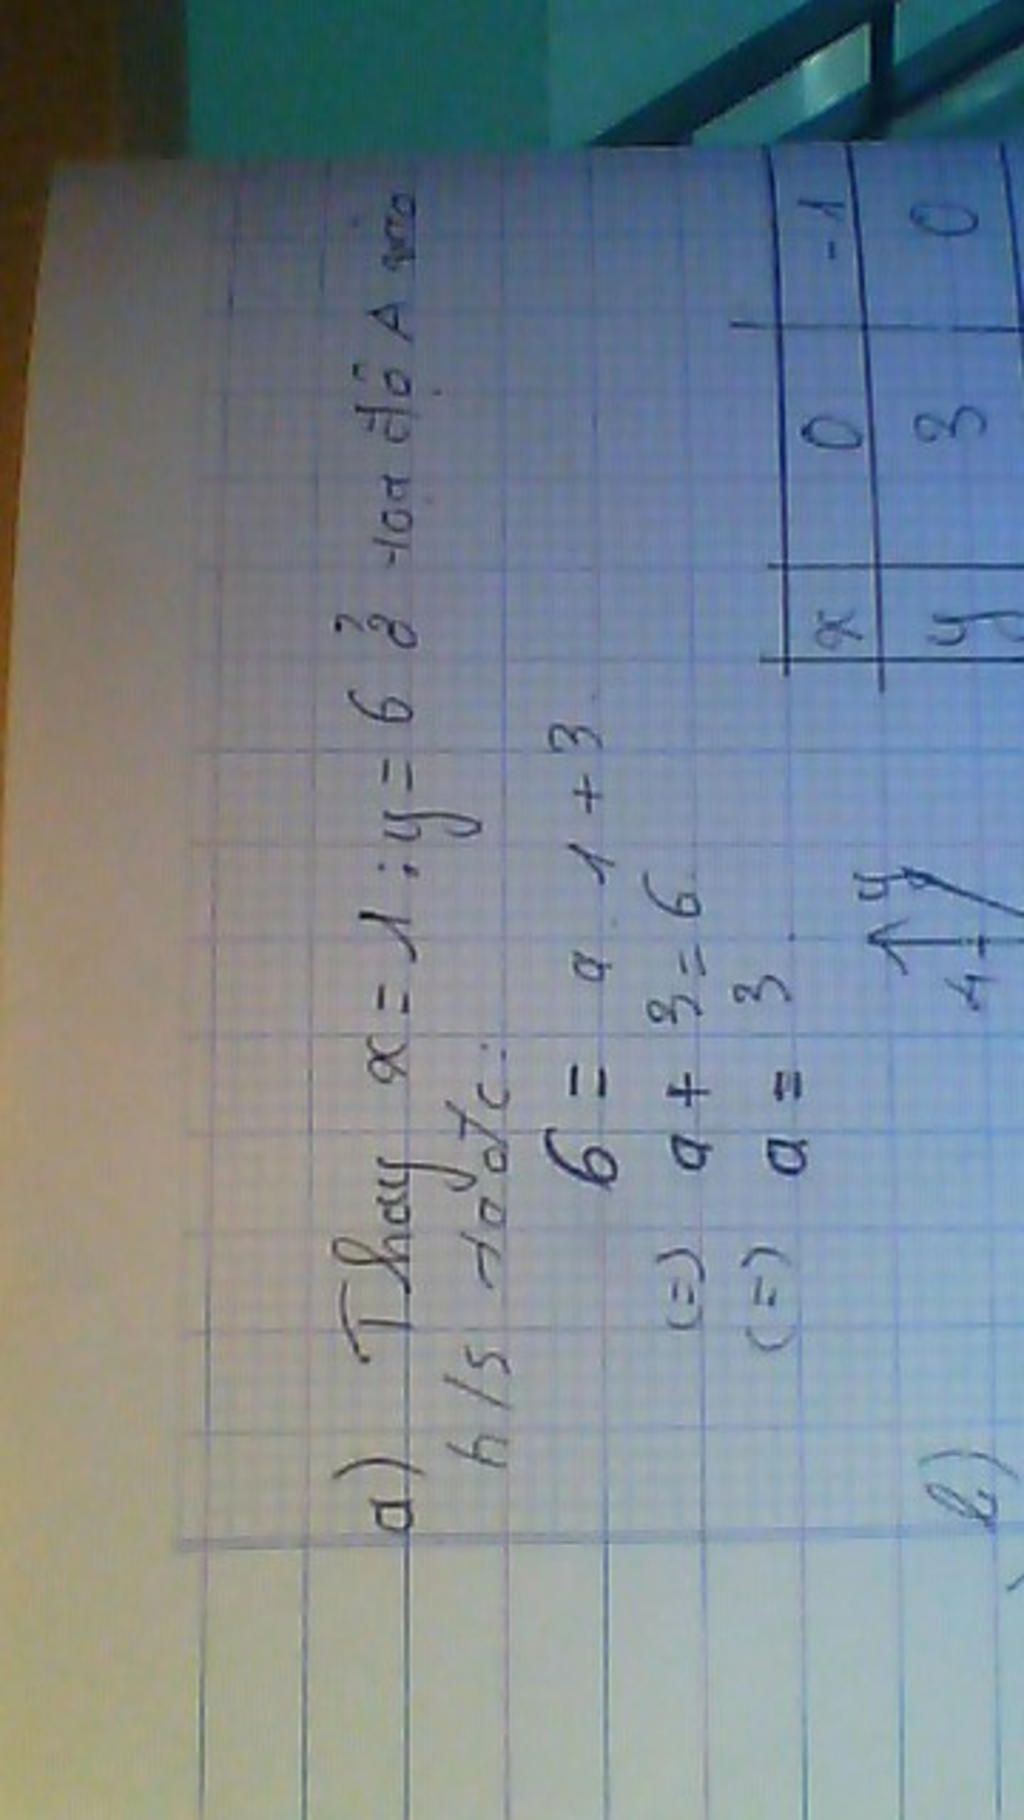 a) Thay x = 1 ; y = 6 ở tọa độ A vào
h/s ta đc:
6 = a . 1 + 3
(=) a + 3 = 6
(=) a = 3
b)
x 0 -1
y 3 0
y
4